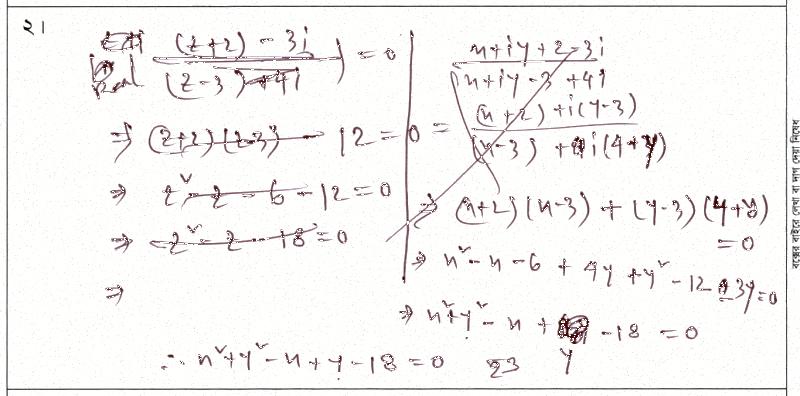 ২।
Real ( (z+2) - 3i / (z-3) + 4i ) = 0
⇒ (z+2)(z-3) - 12 = 0
⇒ z² - z - 6 - 12 = 0
⇒ z² - z - 18 = 0
⇒
x+iy+2-3i / x+iy-3+4i
= (x+2)+i(y-3) / (x-3)+i(4+y)
⇒ (x+2)(x-3) + (y-3)(4+y) = 0
⇒ x² - x - 6 + 4y + y² - 12 - 3y = 0
⇒ x²+y² - x + y - 18 = 0
∴ x²+y²-x+y-18 = 0
বক্সের বাইরে লেখা বা দাগ দেয়া নিষেধ